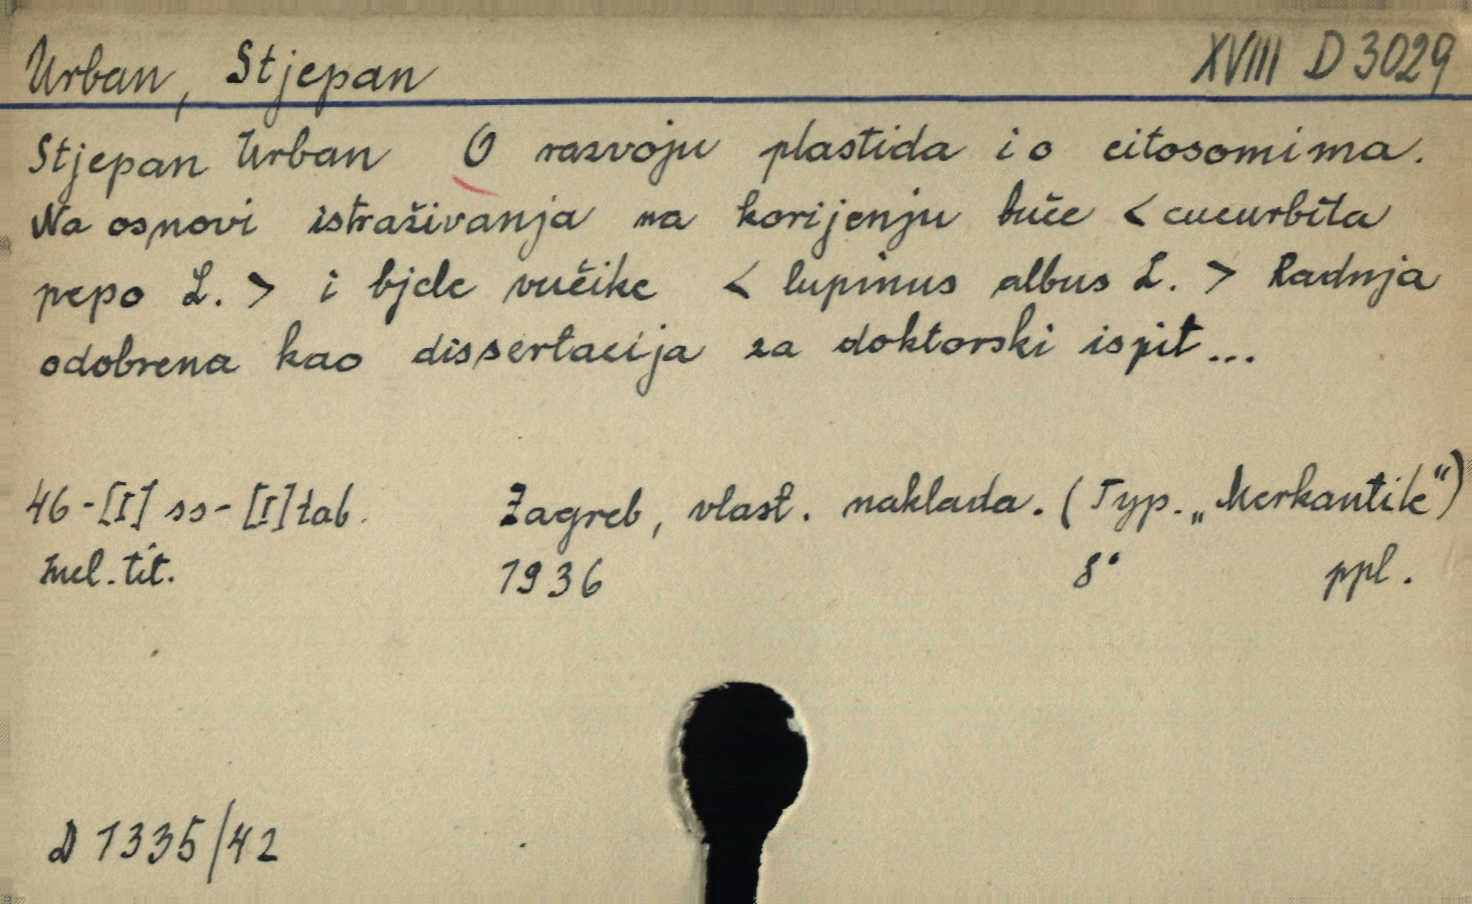 Urban, Stjepan XVIII D 3029
Stjepan Urban O razvoju plastida i o citosomima.
Na osnovi istraživanja na korijenju buče <cucurbita
pepo L.> i bjele vučike <lupinus albus L.> Radnja
odobrena kao dissertacija za doktorski ispit...
46-[I] ss-[I] tab. Zagreb, vlast. naklada. (Typ. „Merkantile“)
Incl. tit. 1936 8° ppl.
D 1335/42